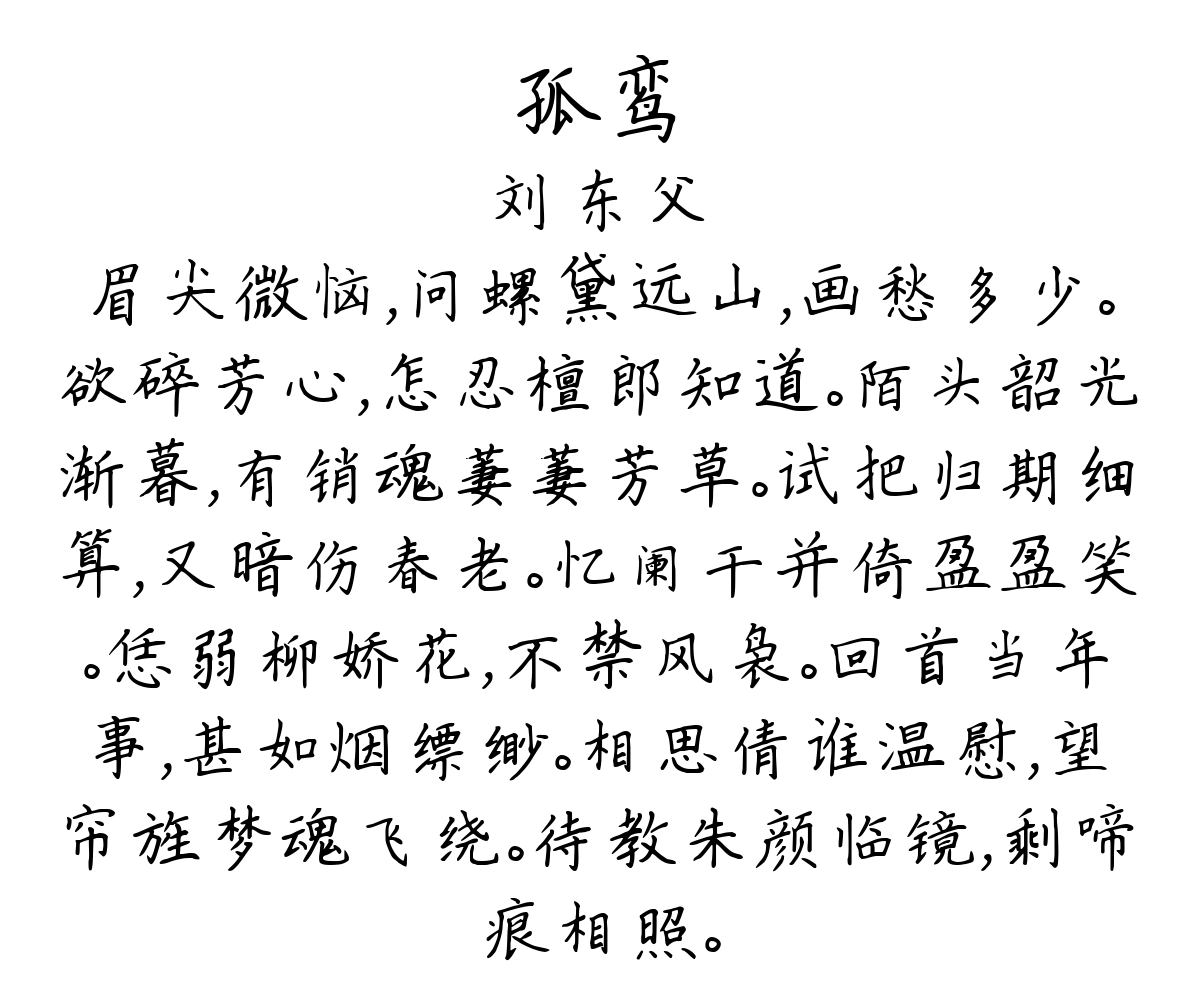 孤鸾
刘东父
眉尖微恼,问螺黛远山,画愁多少。
欲碎芳心,怎忍檀郎知道。陌头韶光
渐暮,有销魂萋萋芳草。试把归期细
算,又暗伤春老。忆阑干并倚盈盈笑
。恁弱柳娇花,不禁风袅。回首当年
事,甚如烟缥缈。相思倩谁温慰,望
帘旌梦魂飞绕。待教朱颜临镜,剩啼
痕相照。